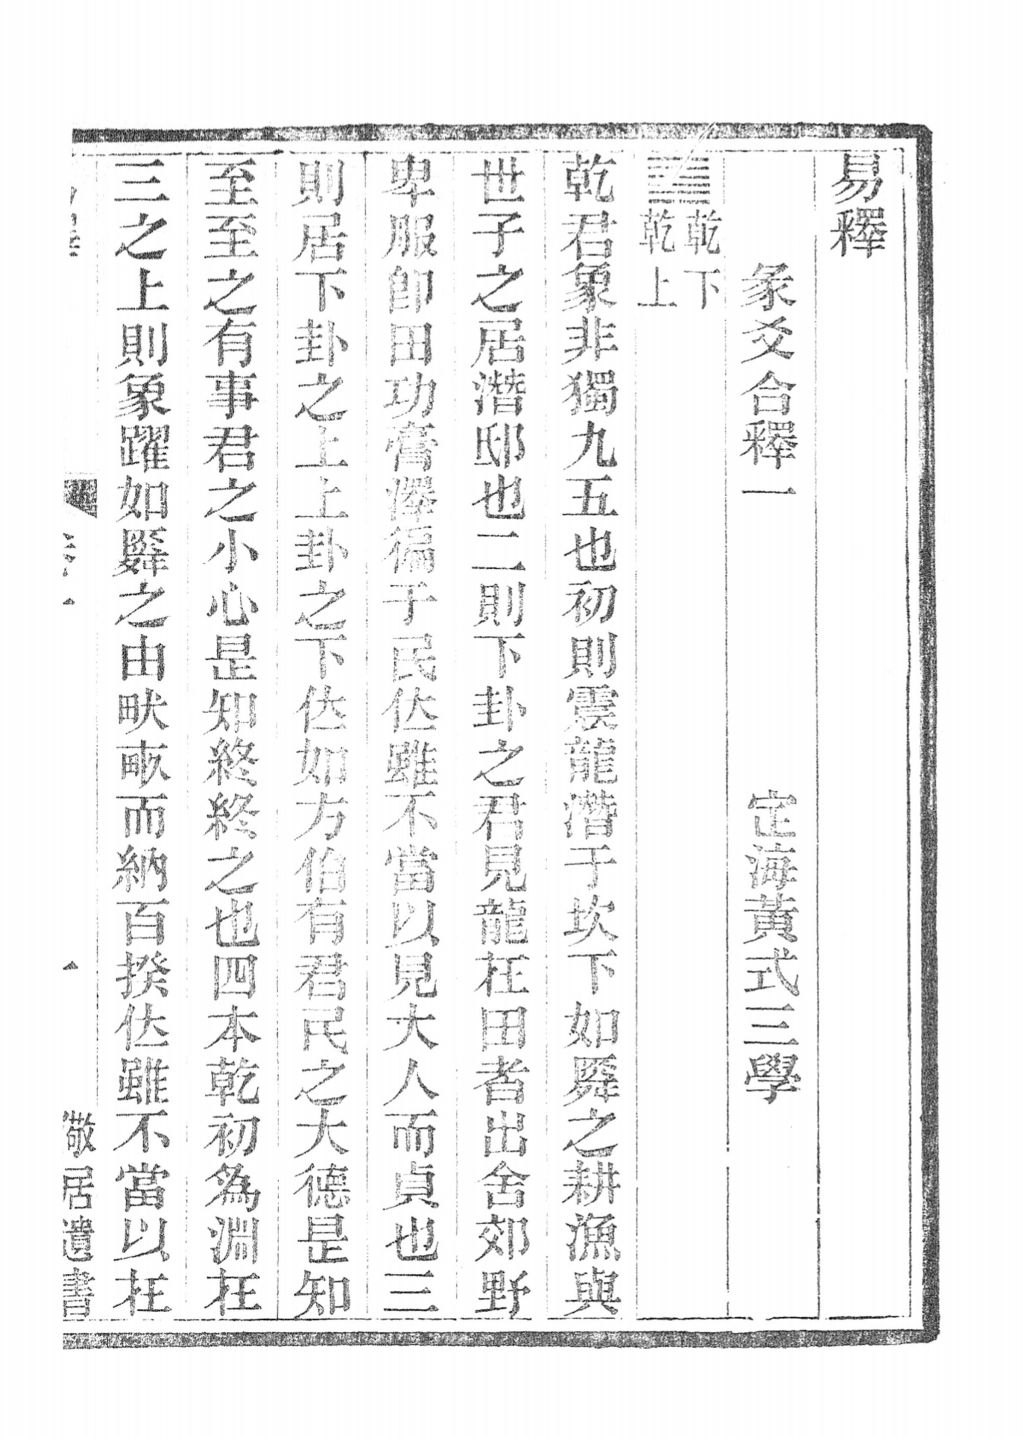 易釋
彖爻合釋一　定海黃式三學
乾下
乾上
乾君象非獨九五也初則震龍潛于坎下如舜之耕漁與
世子之居潛邸也二則下卦之君見龍在田者出舍郊野
卑服卽田功膏澤徧于民位雖不當以見大人而貞也三
則居下卦之上上卦之下位如方伯有君民之大德是知
至至之有事君之小心是知終終之也四本乾初爲淵在
三之上則象躍如舜之由畎畝而納百揆位雖不當以在
儆居遺書